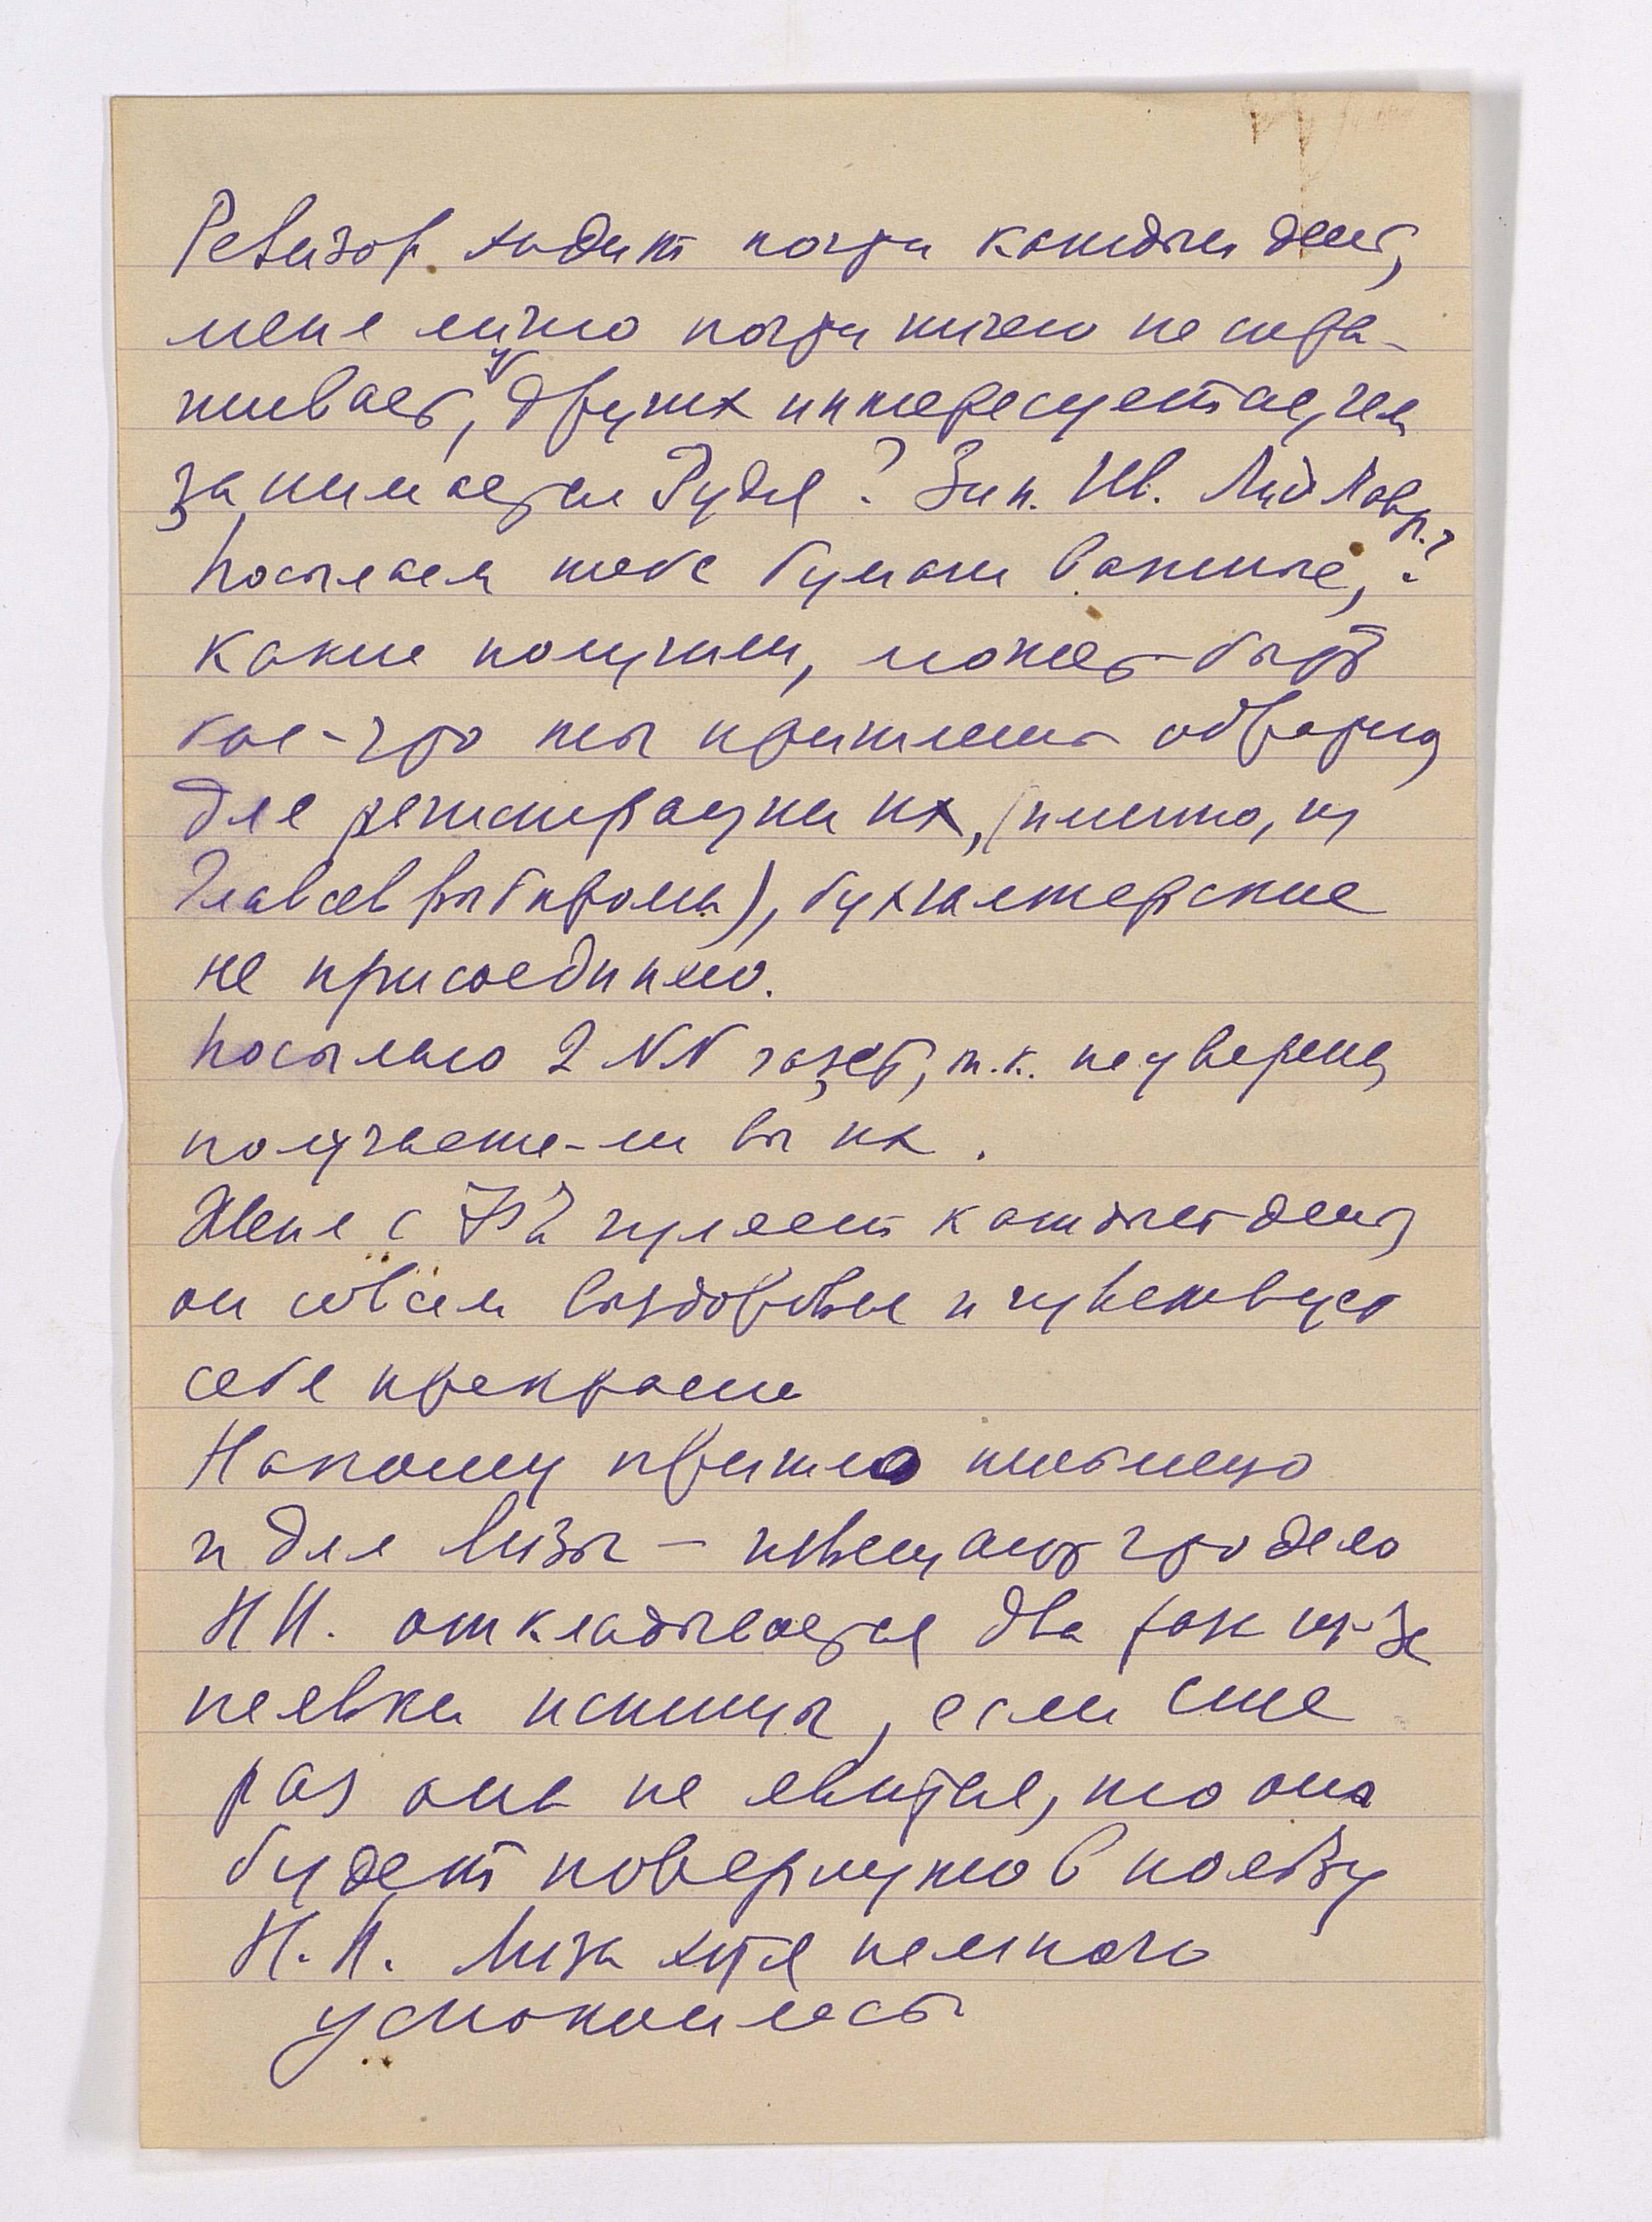 Ревизор ходит почти каждый день,
меня лично почти ничего не спра-
шивает, у других интересуется, чем
занимается Рудя? Зин. Ив. Люд. Лавр.?
Посылаем тебе бумаги важные,
какие получили, может быть
кое-что ты пришлешь обратно
для регистрации их, (именно, из
Главсеврыбпрома), бухгалтерские
не присоединяю.
Посылаю 2 NN газет, т.к. не уверена,
получаете-ли вы их.
Женя с гуляет каждый день,
он совсем выздоровел и чувствует
себя прекрасно
Накошу пришло письмецо
и для Лизы — извещают что дело
Н И. откладывается два раза из-за
неявки истицы, если еще
раз она не явится, то оно
будет повернуто в пользу
Н. И. Лиза хотя немного
успокоилась